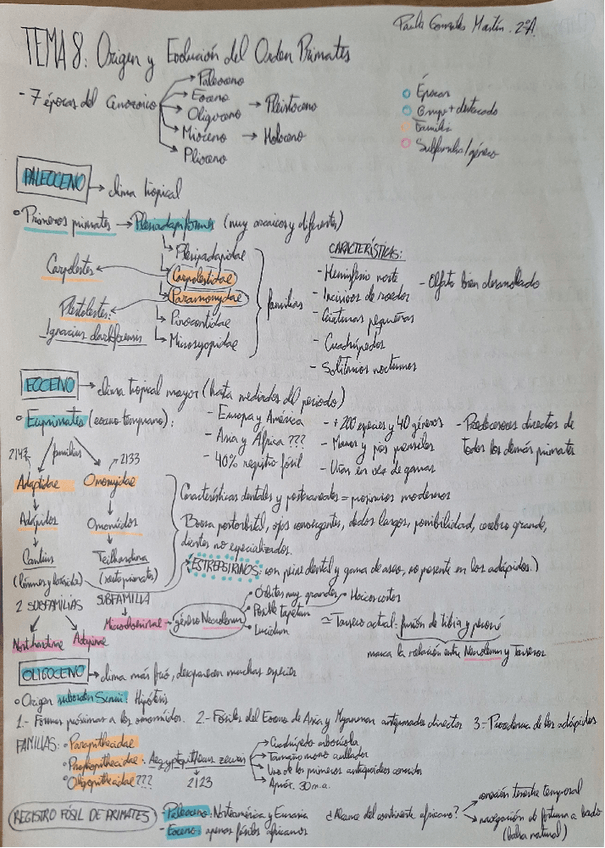 Paula Gonzales Martín 2ºA.
TEMA 8: Origen y Evolución del Orden Primates
- 7 épocas del Cenozoico
Paleoceno
Eoceno → Pleistoceno
Oligoceno
Mioceno → Holoceno
Plioceno
Épocas
Grupo + destacado
Familia
Subfamilia/género
PALEOCENO → clima tropical
Primeros primates → Plesiadapiformes (muy arcaicos y diferentes)
Plesiadapidae
Carpolestes ← Carpolestidae
Paramomydae
Ignacius clarkforensis
Microsyopidae
familias
CARACTERÍSTICAS:
- Hemisferio norte
- Incisivos de roedor
- Criaturas pequeñas
- Cuadrúpedos
- Solitarios nocturnos
- Olfato bien desarrollado
EOCENO → clima tropical mayor (hasta mediados del periodo)
Euprimates (eoceno temprano):
- Europa y América
- Asia y África ???
- 40% registro fósil
- +200 especies y 40 géneros
- Manos y pies prensiles
- Uñas en vez de garras
- Predecesores directos de
todos los demás primates
familias
2147
2133
Adapidae Omomyidae
Adápidos Omomidos
Cantius Teilhardina
2 SUBFAMILIAS SUBFAMILIA
Notharctinae Adapinae
Características dentales y postcraneales = prosimios modernos
Barra postorbital, ojos convergentes, dedos largos, ponibilidad, cerebro grande,
dientes no especializados.
ESTREPSIRINOS: con peine dental y garra de aseo, no presente en los adápidos.)
Microchoerinae → género Necrolemur
Órbitas muy grandes → Hocico corto
Posible tapetum
≈ Tarsero actual: fusión de tibia y peroné
marca la relación entre Necrolemur y Tarseros
OLIGOCENO → clima más frío, desaparecen muchas especies
Origen suborden Simii: Hipótesis
1.- Formas próximas a los omomidos. 2.- Fósiles del Eoceno de Asia y Myanmar antepasados directos 3.- Procedencia de los adápidos
FAMILIAS: Parapithecidae
Propliopithecidae: Aegyptopithecus zeuxis
Oligopithecidae ???
2123
Cuadrúpedo arborícola
Tamaño mono aullador
Uno de los primeros antropoideos conocidos
Aprox. 30 m.a.
REGISTRO FÓSIL DE PRIMATES
- Paleoceno: Norteamérica y Eurasia
- Eoceno: apenas fósiles africanos
¿Alcance del continente africano?
conexión terrestre temporal
navegación de fortuna a bordo
(balsa natural)